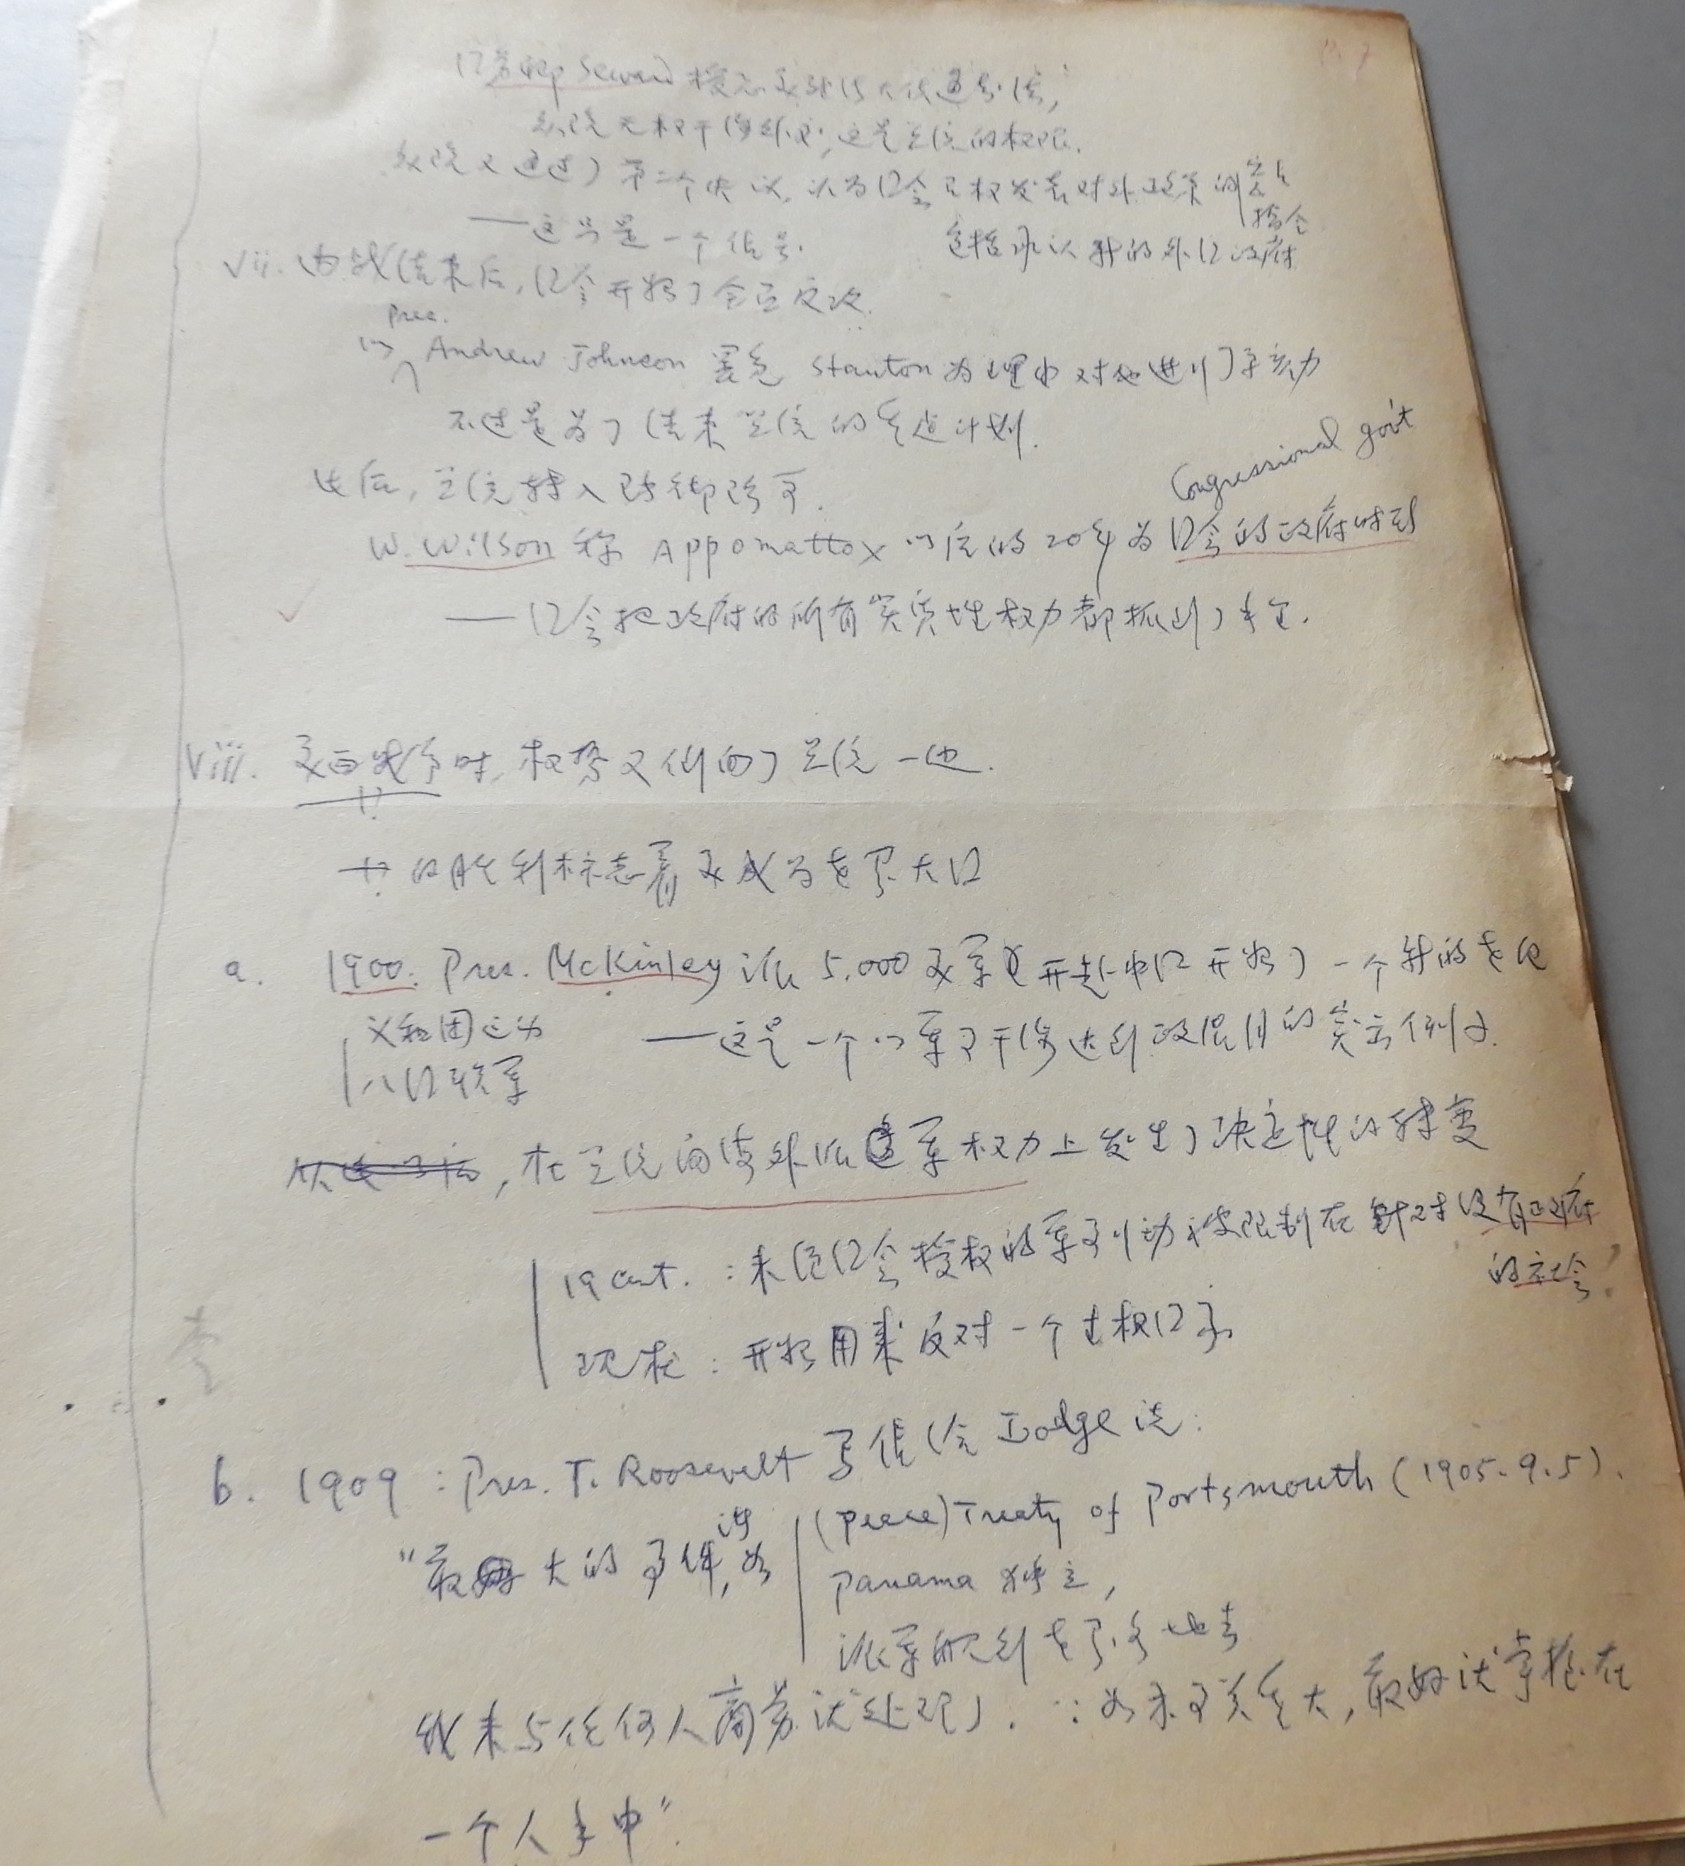 Seward
众院无权干涉外交,这是总统的权限.
众院又通过了第二个决议,认为囗会有权发表对外政策的
指令
——这只是一个信号. 包括承认新的外囗政府
vii. 内战结束后,囗会开始了全面反攻.
Pres.
以 Andrew Johnson 罢免 Stanton 为理由对他进行了弹劾
不过是为了结束总统的重建计划.
此后,总统转入防御阶段.
Congressional gov't
W. Wilson 称 Appomattox 以后的20年为囗会的政府时期
——囗会把政府的所有实质性权力都抓到了手里.
viii. 美西战争时,权势又倒向了总统一边.
的胜利标志着美成为世界大囗
a. 1900. Pres. McKinley 派 5,000 美军开赴中囗开始了一个新的世纪
义和团运动 ——这是一个以军事干涉达到政治目的的突出例子.
八囗联军
,在总统向海外派遣军权力上发生了决定性的转变
19 cent. : 未经囗会授权的军事行动被限制在针对没有政府
的社会
现在 : 开始用来反对一个主权囗家
b. 1909 : Pres. T. Roosevelt 写信给 Lodge 说:
"最大的事件,诸如 (peace) Treaty of Portsmouth (1905.9.5).
Panama 独立,
派军舰到世界各地去
我未与任何人商若就处理了. ∵如果事关重大,最好就掌握在
一个人手中".